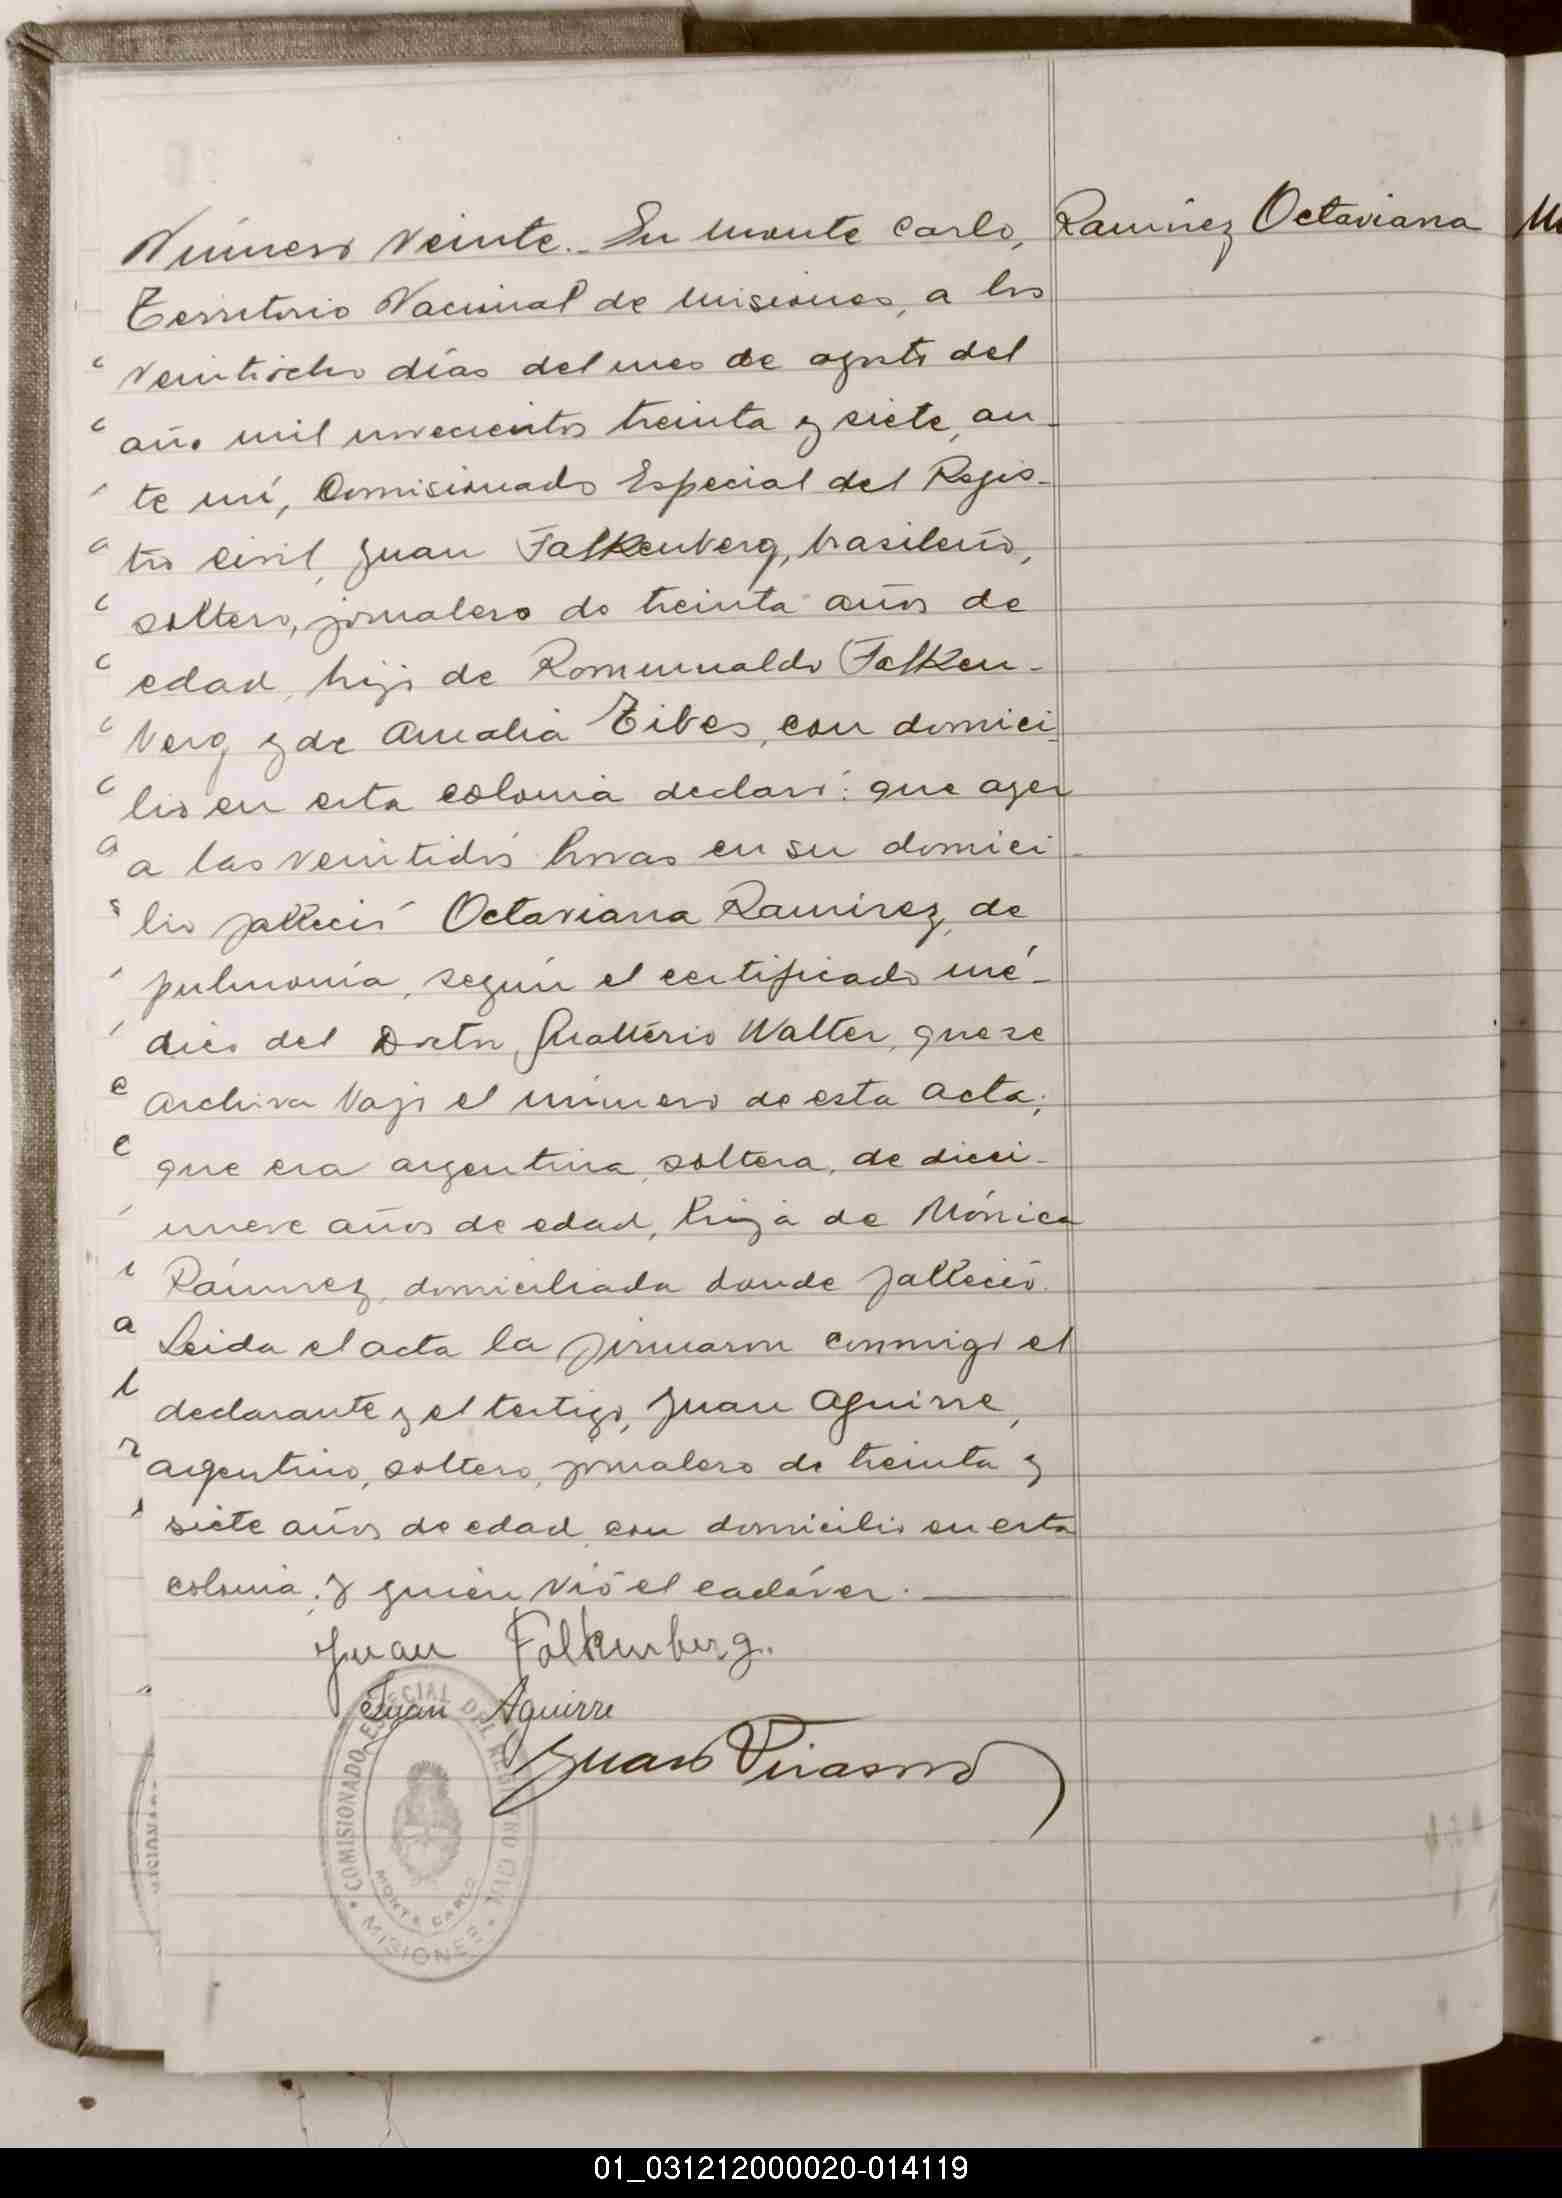 Número Veinte.- En Monte Carlo,
Ramírez Octaviana
Territorio Nacional de Misiones, a los
veintiocho días del mes de agosto del
año mil novecientos treinta y siete, an-
te mí, Comisionado Especial del Regis-
tro civil, Juan Falkenberg, brasileño,
soltero, jornalero de treinta años de
edad, hijo de Romualdo Falken-
berg y de Amalia Tibes, con domici-
lio en esta colonia declaró: que ayer
a las veintidós horas en su domici-
lio falleció Octaviana Ramírez, de
pulmonía, según el certificado mé-
dico del Doctor, Gualterio Walter, que se
archiva bajo el número de esta acta;
que era argentina, soltera, de dieci-
nueve años de edad, hija de Mónica
Ramírez, domiciliada donde falleció.
Leida el acta la firmaron conmigo el
declarante y el testigo, Juan Aguirre,
argentino, soltero, jornalero de treinta y
siete años de edad, con domicilio en esta
colonia, y quien vió el cadáver.
Juan Falkenberg.
Juan Aguirre
Juan
COMISIONADO ESPECIAL DEL REGISTRO CIVIL
MONTE CARLO
MISIONES
01_031212000020-014119